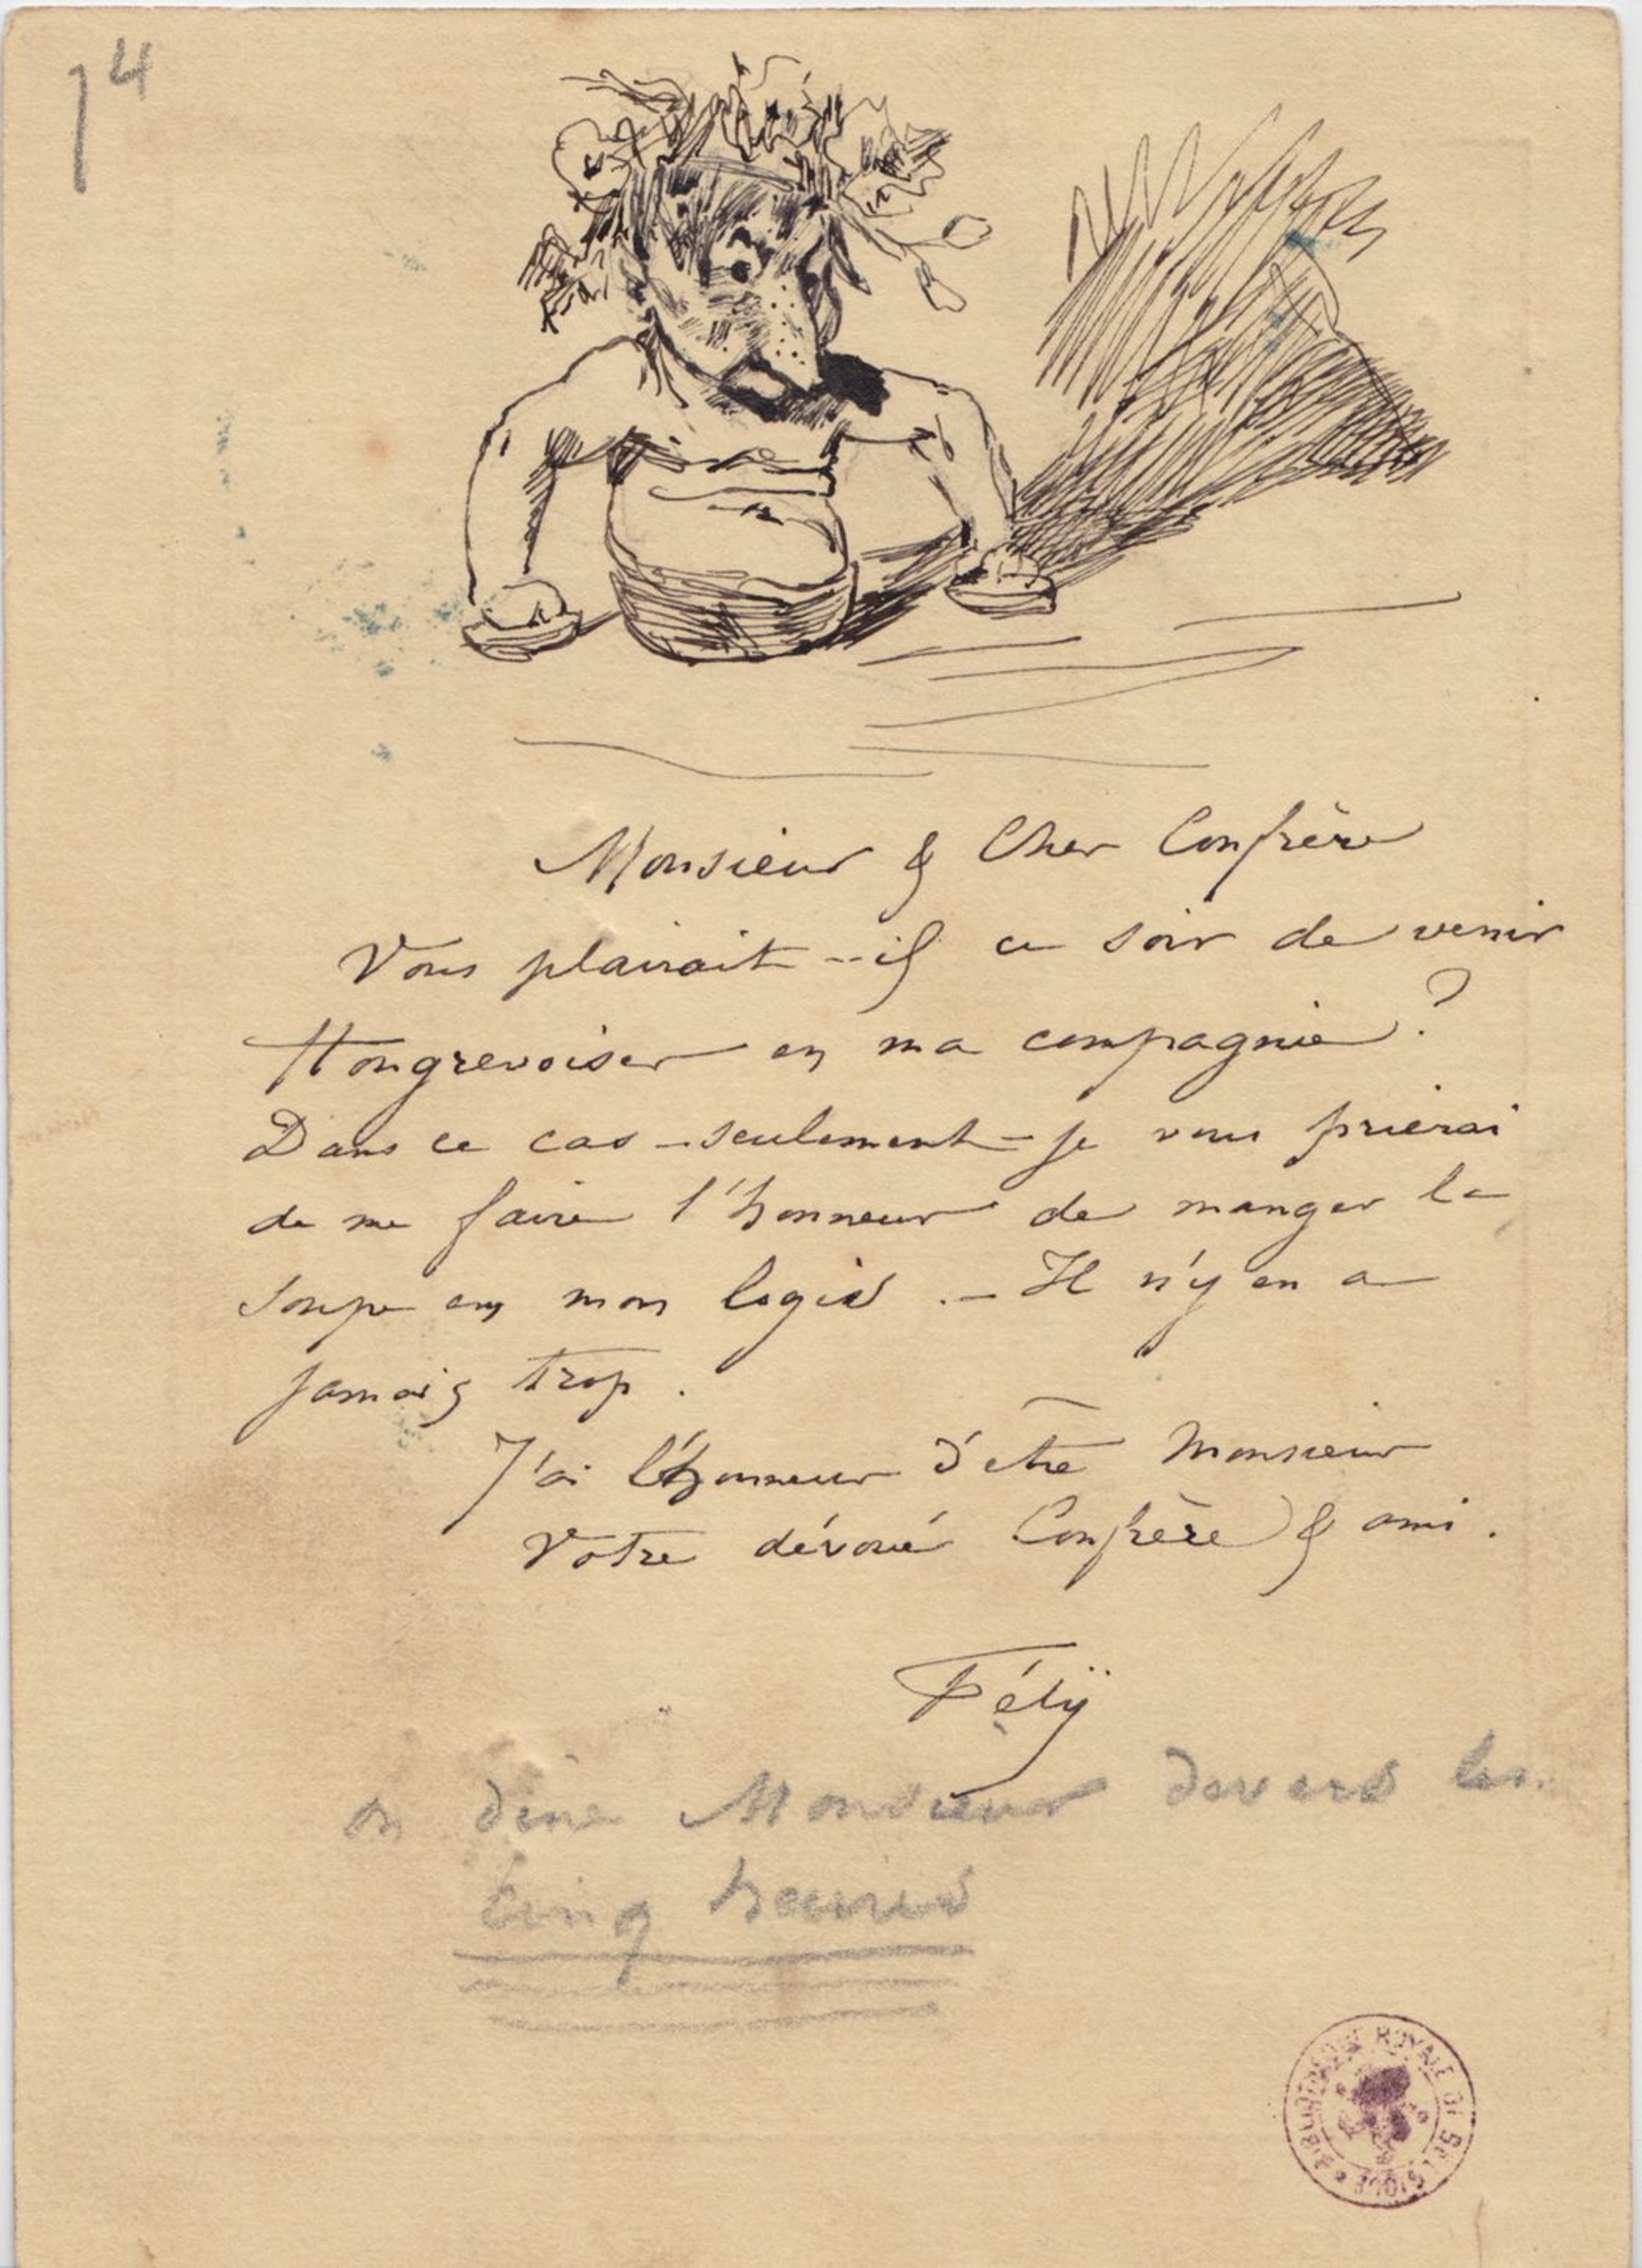 14
Monsieur & Cher Confrère
Vous plairait-il ce soir de venir
Hongrevoiser en ma compagnie?
Dans ce cas - seulement - je vous prierai
de me faire l'honneur de manger la
soupe en mon logis. - Il n'y en a
jamais trop.
J'ai l'honneur d'être Monsieur
Votre dévoué Confrère & ami.
Félÿ
on dine Monsieur devers les
Cinq heures
BIBLIOTHÈQUE ROYALE DE BELGIQUE